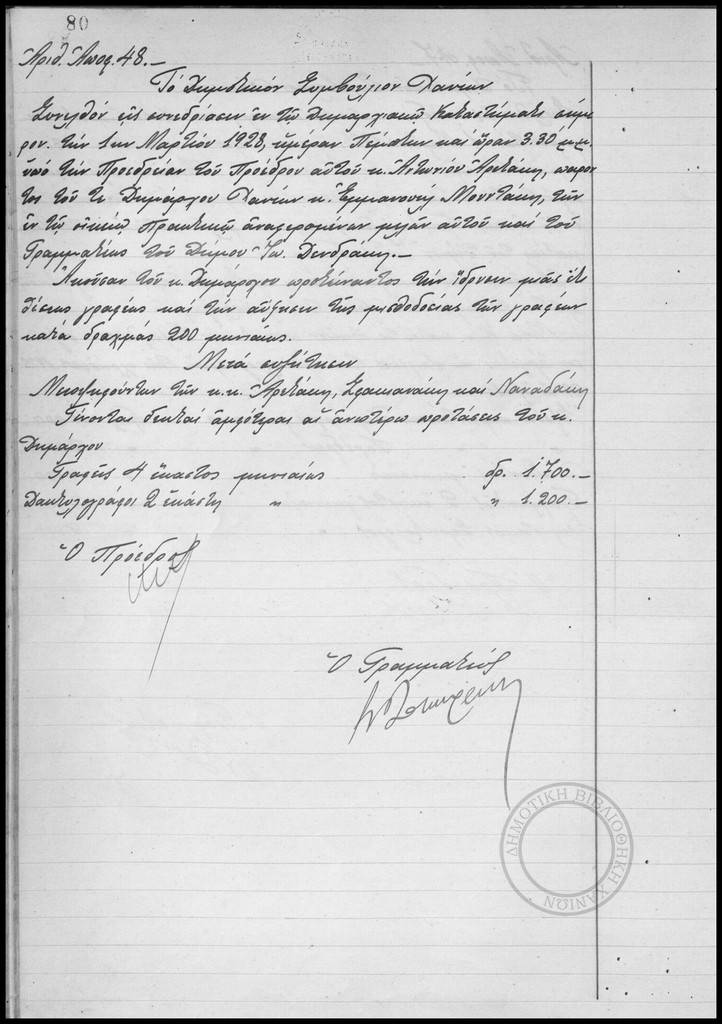 80
Ἀριθ. Ἀποφ. 48.-
Τὸ Δημοτικὸν Συμβούλιον Χανίων
Συνελθὸν εἰς συνεδρίασιν ἐν τῷ Δημαρχιακῷ Καταστήματι σήμε
ρον τὴν 1ην Μαρτίου 1928, ἡμέραν Πέμπτην καὶ ὥραν 3.30 μ.μ.
ὑπὸ τὴν Προεδρείαν τοῦ Προέδρου αὐτοῦ κ. Ἀντωνίου Ἀρετάκη, παρόν
τος τοῦ τε Δημάρχου Χανίων κ. Ἐμμανουὴλ Μουντάκη, τῶν
ἐν τῷ οἰκείῳ πρακτικῷ ἀναφερομένων μελῶν αὐτοῦ καὶ τοῦ
Γραμματέως τοῦ Δήμου Ἰω. Δενδράκη.-
Ἀκοῦσαν τοῦ κ. Δημάρχου προτείναντος τὴν ἵδρυσιν μιᾶς ἔτι
θέσεως γραφέως καὶ τὴν αὔξησιν τῆς μισθοδοσίας τῶν γραφέων
κατὰ δραχμὰς 200 μηνιαίως.
Μετὰ συζήτησιν
Μειοψηφούντων τῶν κ.κ. Ἀρετάκη, Σφακιανάκη καὶ Ναναδάκη
Γίνονται δεκταὶ ἀμφότεραι αἱ ἀνωτέρω προτάσεις τοῦ κ.
Δημάρχου
Γραφεῖς 4 ἕκαστος μηνιαίως δρ. 1.700.-
Δακτυλογράφοι 2 ἑκάστη " " 1.200.-
Ὁ Πρόεδρος
Ὁ Γραμματεύς
ΔΗΜΟΤΙΚΗ ΒΙΒΛΙΟΘΗΚΗ ΧΑΝΙΩΝ